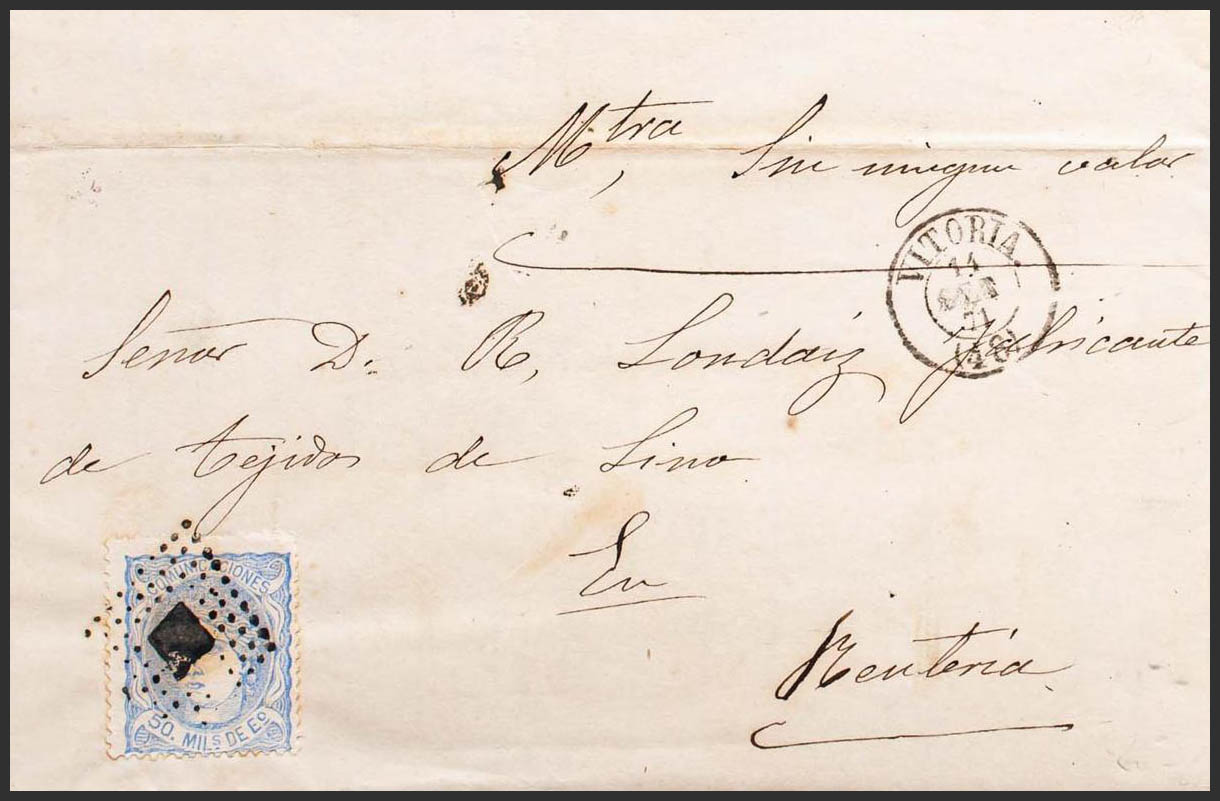 Mtra, Sin ningun valor
VITORIA
SET
71
Señor D. R, Londaiz fabricante
de tejidos de Lino
En
Renteria
COMUNICACIONES
50. MILS DE EO